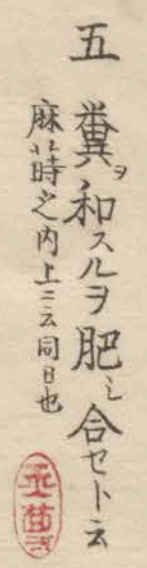 五 糞ヲ和スルヲ肥シ合セト云
麻ハ蒔之内上ニ云同日也